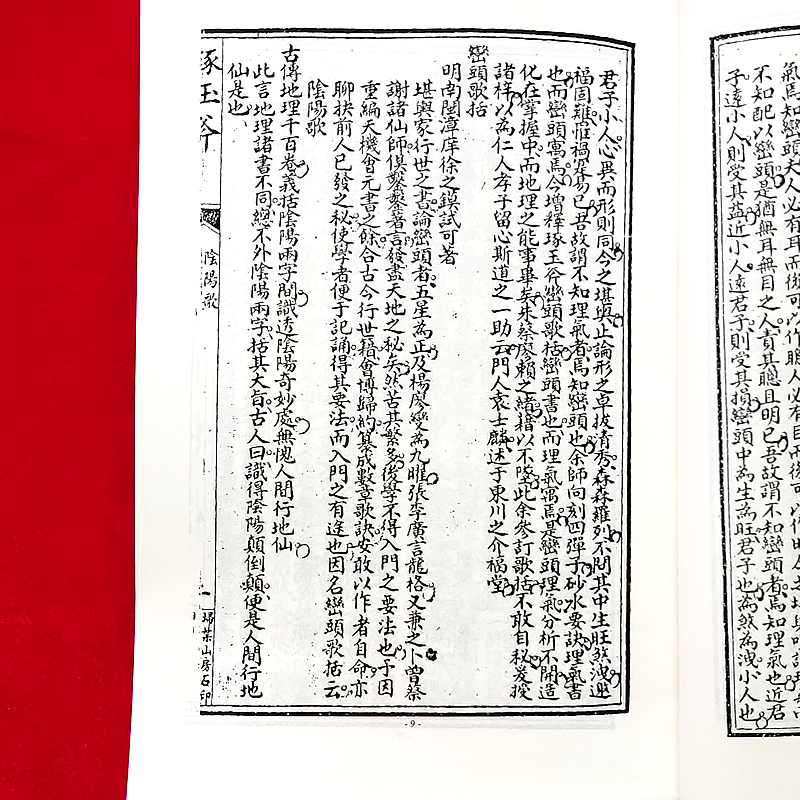 氣焉知巒頭夫人必有耳而後可以作聰人必有目而後可以作明今之堪輿
不知配以巒頭是猶無耳無目之人責其聰且明已吾故謂不知巒頭者焉知理氣也近君
子遠小人則受其益近小人遠君子則受其損巒頭中為生為旺君子也為煞為洩小人也
君子小人心異而形則同今之堪輿止論形之卓拔清秀森森羅列不問其中生旺煞洩避
福固難罹禍容易已吾故謂不知理氣者焉知巒頭也余師向刻四彈子砂水要訣理氣書
也而巒頭寓焉今增釋琢玉斧巒頭歌括巒頭書也而理氣寓焉是巒頭理氣分析不開造
化在掌握中而地理之能事畢矣朱蔡廖賴之緒藉以不墜此余參訂歌括不敢自秘爰授
諸梓以為仁人孝子留心斯道之一助云門人袁士麟述于東川之介福堂
巒頭歌括
明南閩漳庠徐之鏌試可著
堪輿家行世之書論巒頭者五星為正及楊廖變為九曜張李廣言龍格又兼之卜曾蔡
謝諸仙師俱鑿鑿著言發盡天地之秘矣然苦其繁多後學不得入門之要法也于因
重編天機會元書之餘合古今行世籍會博歸約纂成數章歌訣安敢以作者自命亦
聊抉前人已發之秘使學者便于記誦得其要法而入門之有途也因名巒頭歌括云
陰陽歌
古傳地理千百卷義括陰陽兩字間識透陰陽奇妙處無愧人間行地仙
此言地理諸書不同總不外陰陽兩字括其大旨古人曰識得陰陽顛倒顛便是人間行地
仙是也
琢玉斧
陰陽歌
一
埽葉山房石印
-9-